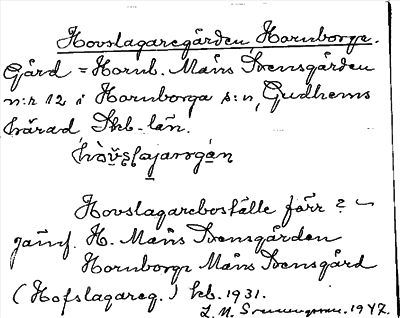 Hovslagaregården Hornborga.
Gård = Hornb. Måns Svensgården
n:r 12 i Hornborga s:n, Gudhems
härad, Skb. län.
Hovslagareboställe förr?
jämf. H. Måns Svensgården
Hornborga Måns Svensgård
(Hofslagareg.) kb. 1931.
1947.